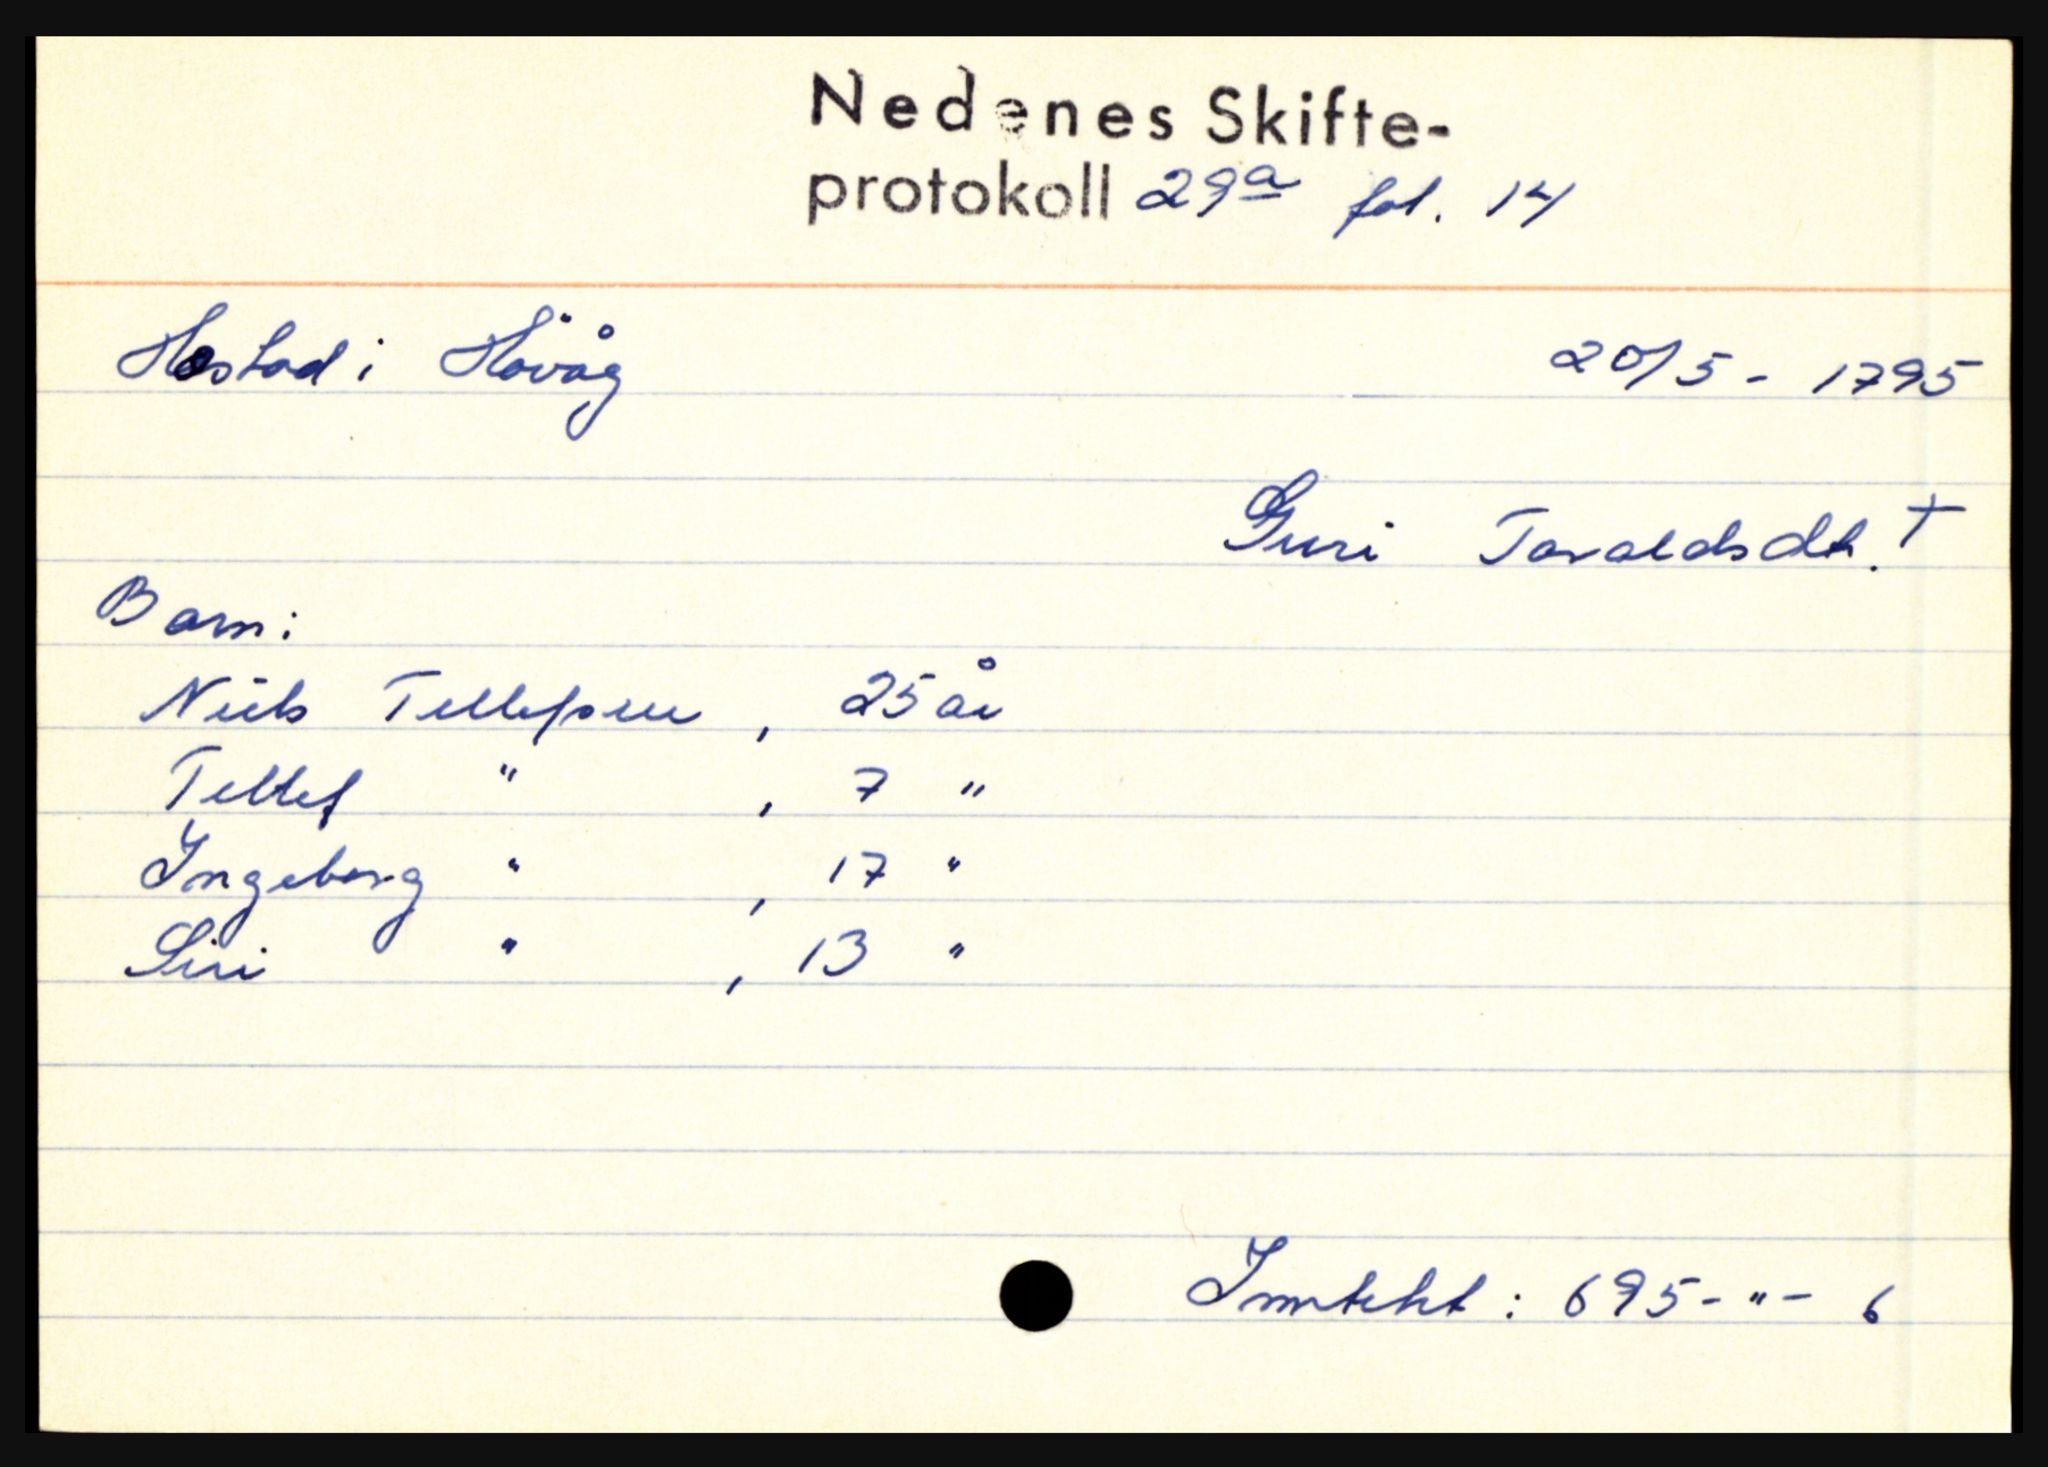 Nedenes Skifte-
protokoll 29a fol. 14
Høstad i Høvåg 20/5 - 1795
Guri Tovaldsdtr. †
Barn:
Niels Tellefsen, 25 år
Tellef " , 7 "
Ingeborg " , 17 "
Siri " , 13 "
Inntekt : 695-"- 6